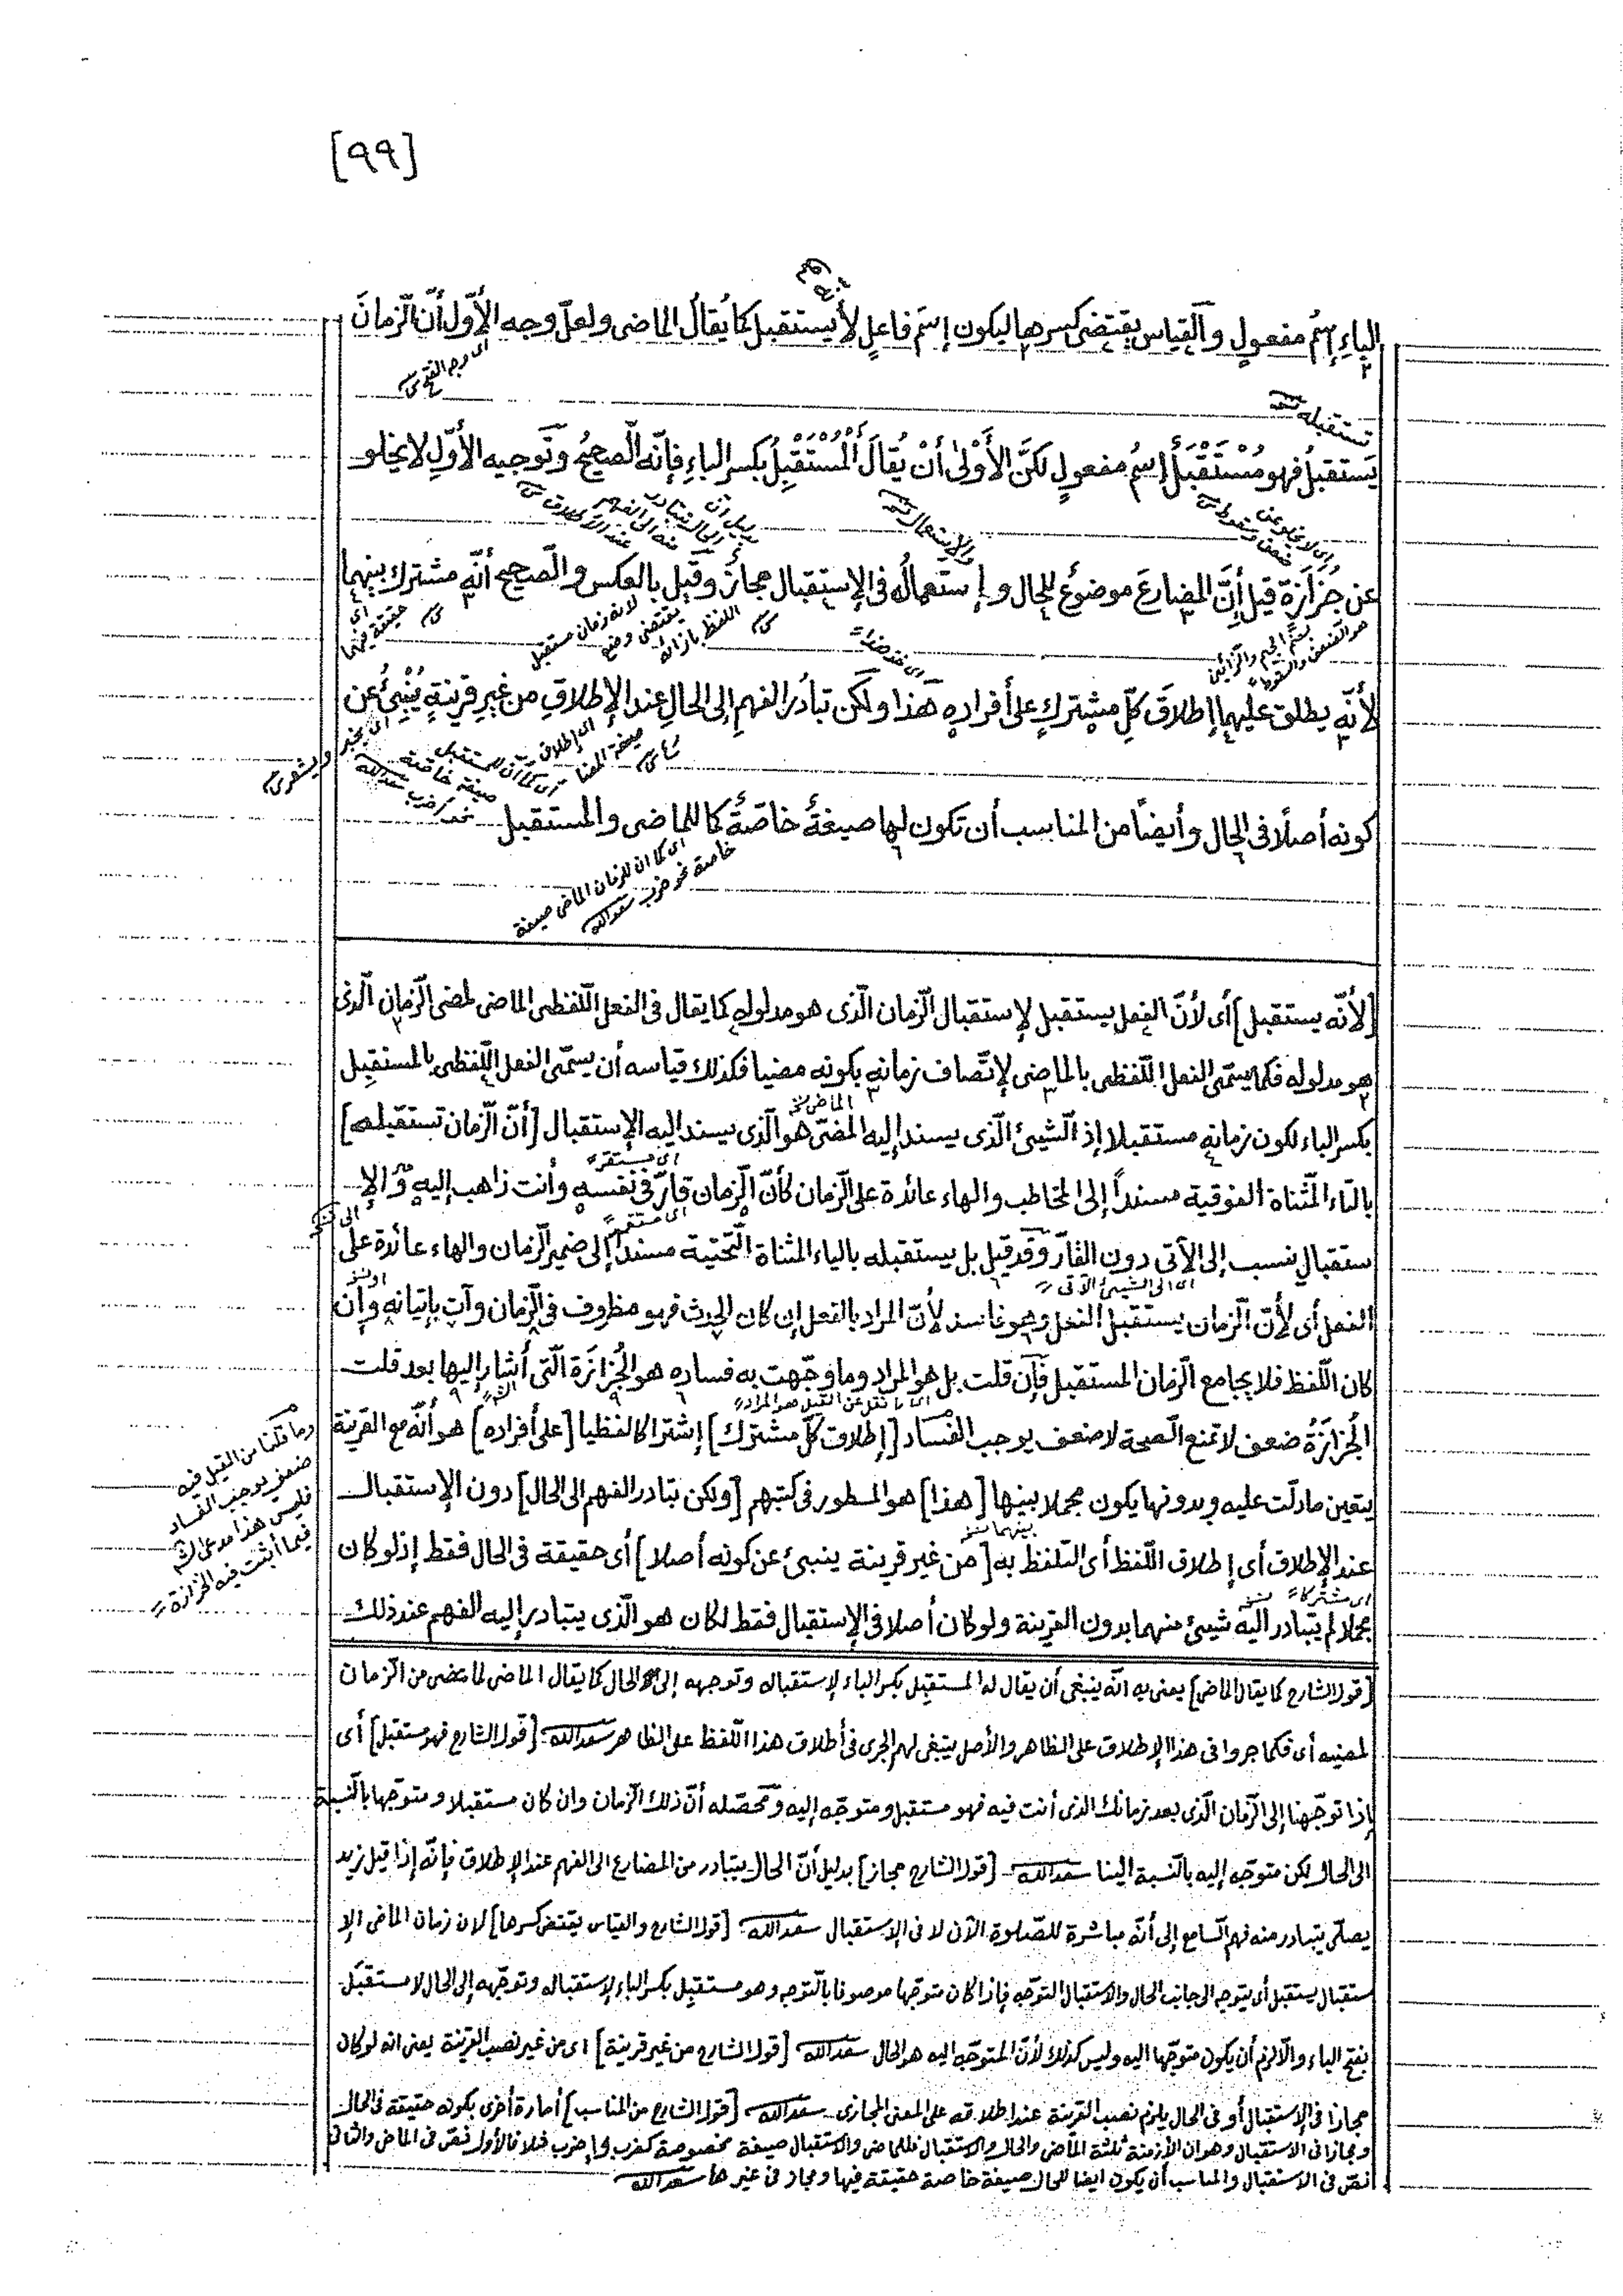 [٩٩]
الباءِ إسمُ مفعولٍ والقياس يقتضى كسرها ليكون إسَم فاعلٍ لأ يستقبل كما يُقالُ الماضى ولعلّ وجه الأوّل أنّ الّزمانَ
اى وجه الفتح
تستقبله
يَستقبلُ فهو مُسْتَقْبَلٌ إسمُ مفعولٍ لكنَّ الأَوْلىٰ أنْ يُقالَ الْمُسْتَقْبِلُ بكسر الباءِ فإنّه الّصحيحُ وتوجيه الأوّلِ لا يخلو
اى لا يخلو عن ضعف وسقوط
والإستعمال
عن حُزازَةٍ قيل أِنَّ المضارعَ موضوعٌ للحال وإستعمالُه فى الإستقبال مجازٌ وقيل بالعكس والّصحيح أنّه مشترك بينهما
هو الضعف والسقوط
لانه زمان مستقبل يقتضى وضع اللفظ بازائه
اى حقيقة فيهما
لأنّه يطلق عليهما إطلاقَ كلِّ مشتركٍ على أفراده هذا ولكن تبادُر الفهمِ إلى الحالِ عند الإطلاقِ من غيرِ قرينةٍ يُنْبِئُ عن
اى يخبر ويشعر
اى كما ان للمستقبل صيغة خاصة نحو أضرب سعدالله
كونه أصلًا فى الحال وأيضًا من المناسب أن تكون لها صيغةٌ خاصّةٌ كما للماضى والمستقبل
اى كما ان للزمان الماضى صيغة خاصة نحو ضرب سعدالله
[لأنّه يستقبل] أى لأنّ الفعل يستقبل لإستقبال الّزمان الّذى هو مدلوله كما يقال فى الفعل الّلفظى الماضى لمضى الّزمان الّذى
هو مدلوله فكما يسمّى الفعل الّلفظى بالماضى لإتّصاف زمانه بكونه مضيا فكذلك قياسه أن يسمّى الفعل الّلفظى بالمستقبِل
بكسر الباء لكون زمانه مستقبلا إذ الّشيئ الّذى يسند إليه المضىّ هو الّذى يسند اليه الإستقبال [أنّ الّزمان تستقبله]
اى مستقر
بالتاء المثّناة الفوقية مسنداً إلى المخاطب والهاء عائدة على الزمان كأنّ الّزمان قارّ فى نفسه وأنت ذاهب إليه والإ
ستقبال نسب إلى الآتى دون القارّ وقد قيل بل يستقبله بالياء المثناة الّتحتية مسنداً إلى ضمير الّزمان والهاء عائدة على
اى الى الشيئ الآتى
الفعل أى لأنّ الّزمان يستقبل الفعل وهو فاسد لأنّ المراد بالفعل إن كان الحدث فهو مظروف فى الّزمان وآتٍ بإتيانه وإن
كان الّلفظ فلا يجامع الّزمان المستقبل فإن قلت بل هو المراد وما وجّهت به فساده هو الحُزازَة الّتى أشار إليها بعد قلت
الحُزازَةُ ضعف لا تمنع الّصحة لا ضعف يوجب الفساد [إطلاق كلّ مشترك] إشتراكا لفظيا [على أفراده] هو أنّه مع القرينة
يتعين ما دلّت عليه وبدونها يكون مجملا بينها [هذا] هو المسطور فى كتبهم [ولكن تبادر الفهم الى الحال] دون الإستقبال
عند الإطلاق أى إطلاق الّلفظ أى الّتلفظ به [من غير قرينة ينبئ عن كونه أصلا] أى حقيقة فى الحال فقط إذ لو كان
مجملا لم يتبادر اليه شيئ منهما بدون القرينة ولو كان أصلا فى الإستقبال فقط لكان هو الّذى يتبادر إليه الفهم عند ذلك
وما قلنا من القيل فيه
ضعف يوجب الفساد
فليس هذا مدعى الش
فيما أثبت فيه الحزازة
[قول الشارح كما يقال الماضى] يعنى به انّه ينبغى أن يقال له المستقبِل بكسر الباء لإستقباله وتوجهه إلى الحال كما يقال الماضى لما مضى من الّزمان
لمضيه أى فكما جروا فى هذا الإطلاق على الظاهر والأصل ينبغى لهم الجرى فى أطلاق هذا الّلفظ على الظاهر سعدالله [قول الشارح فهو مستقبل] أى
إذا توجّهنا إلى الّزمان الّذى بعد زمانك الذى أنت فيه فهو مستقبل ومتوجّه إليه ومحصّله أنّ ذلك الّزمان وان كان مستقبلا ومتوجّها بالّنسبة
الى الحال لكن متوجّه إليه بالّنسبة الينا سعدالله [قول الشارح مجاز] بدليل أنّ الحال يتبادر من المضارع الى الفهم عند الإطلاق فإنّه إذا قيل زيد
يصلّى يتبادر منه فهم الّسامع إلى أنّه مباشرة للصّلوة الآن لا فى الإستقبال سعدالله [قول الشارح والقياس يقتضى كسرها] لان زمان الماضى الإ
ستقبال يستقبل أى يتوجه الى جانب الحال والاستقبال التوجّه فإذا كان متوجّها موصوفا بالّتوجه وهو مستقبِل بكسر الباء لإستقباله وتوجّهه إلى الحال لا مستقبَل
بفتح الباء والّا لزم أن يكون متوجّها اليه وليس كذلك لأنّ المتوجّه اليه هو الحال سعدالله [قول الشارح من غير قرينة] اى من غير نصب القرينة يعنى انه لو كان
مجازا فى الإستقبال أو فى الحال يلزم نصب القرينة عند اطلاقه على المعنى المجازى سعدالله [قول الشارح من المناسب] أمارة أخرى بكونه حقيقة فى الحال
ومجازا فى الاستقبال وهو ان الأزمنة ثلثة الماضى والحال والاستقبال فللماضى والاستقبال صيغة مخصوصة كضرب وإضرب فالأول نصّ فى الماضى والثانى
نصّ فى الاستقبال والمناسب أن يكون ايضا للحال صيغة خاصة حقيقة فيها ومجاز فى غيرها سعدالله